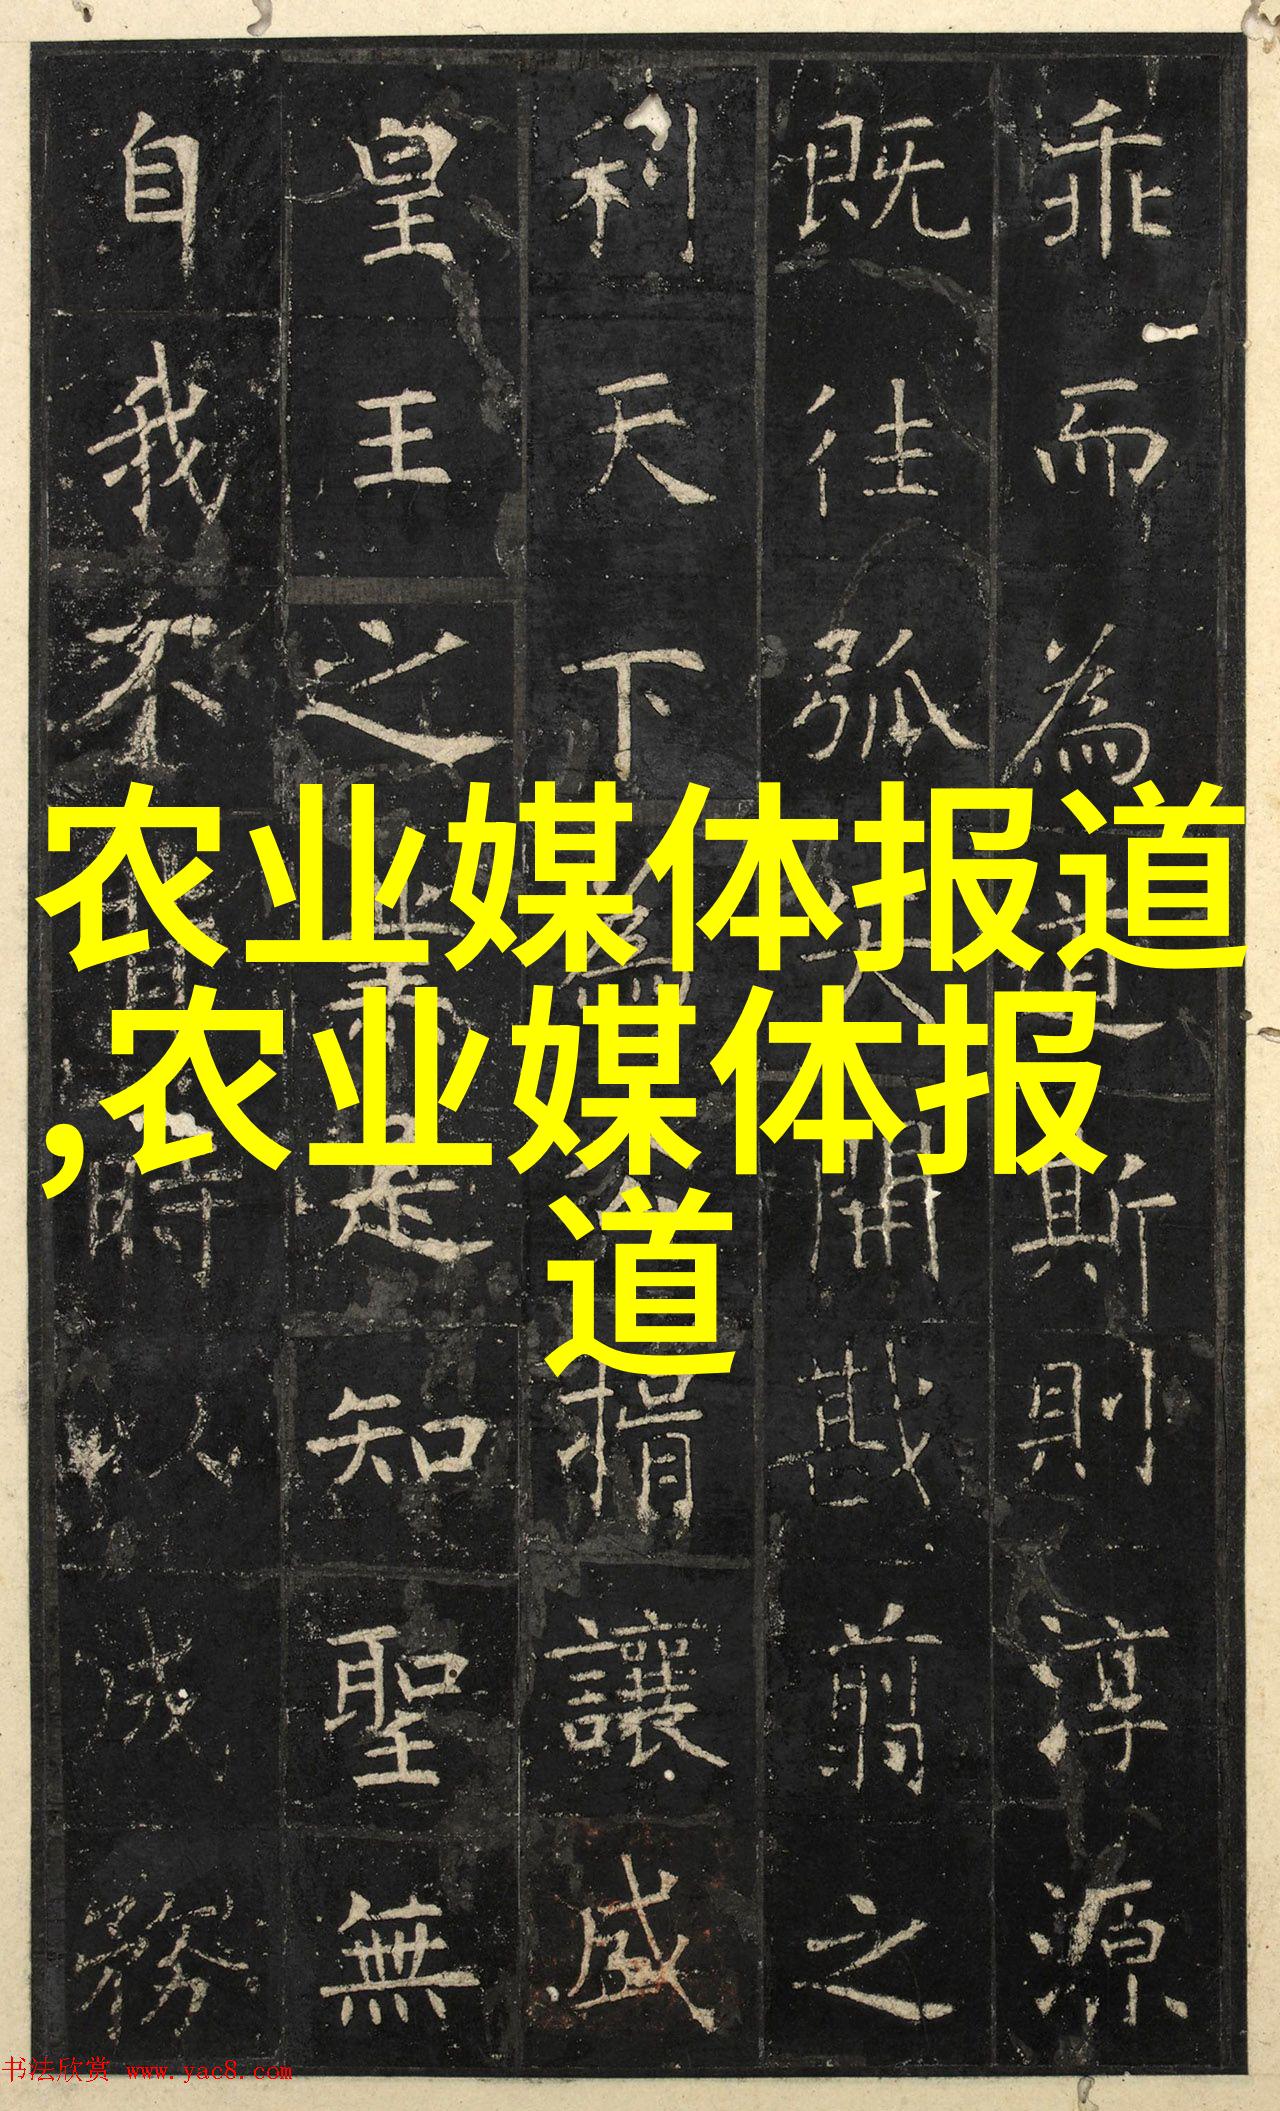 乖而為斯則淳源
既往弧開戡翦之
利天下揖讓威
皇王之業是知聖無
自我不時以成務
农业媒体报道
,农业媒体报
道
书法欣赏 www.yac8.com